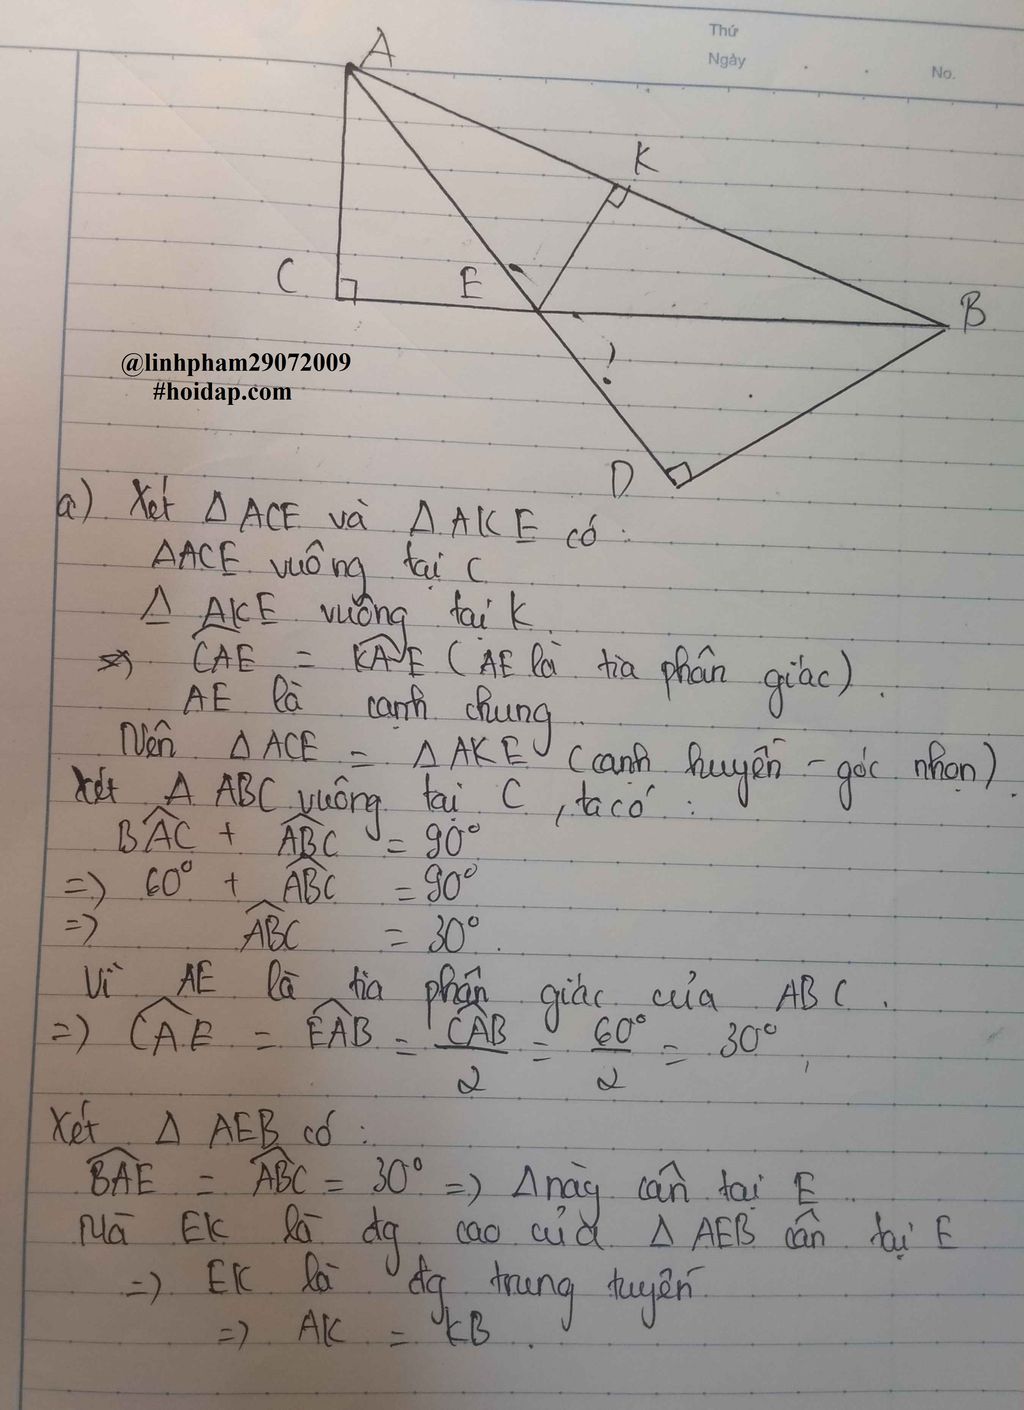 Thứ
Ngày
No.
A
K
C
E
B
@linhpham29072009
#hoidap.com
D
a) Xét Δ ACE và Δ AKE có:
ΔACE vuông tại C
Δ AKE vuông tại K.
CAE = KAE (AE là tia phân giác).
AE là cạnh chung.
Nên Δ ACE = Δ AKE (cạnh huyền - góc nhọn).
Xét Δ ABC vuông tại C, ta có:
BAC + ABC = 90°
=> 60° + ABC = 90°
=> ABC = 30°.
Vì AE là tia phân giác của ABC.
=> CAE = EAB = CAB/2 = 60°/2 = 30°
Xét Δ AEB có:
BAE = ABC = 30° => Δ này cân tại E.
Mà EK là đg cao của Δ AEB cân tại E
=> EK là đg trung tuyến
=> AK = KB.